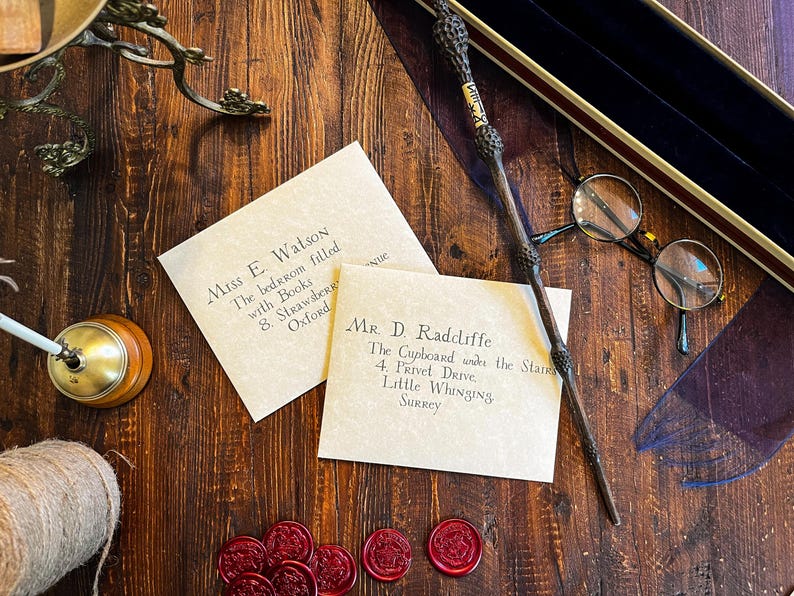 Miss E. Watson
The bedrrom filled
with Books
8. Strawsberr
Oxford
Mr. D. Radcliffe
The Cupboard under the Stairs
4. Privet Drive,
Little Whinging,
Surrey